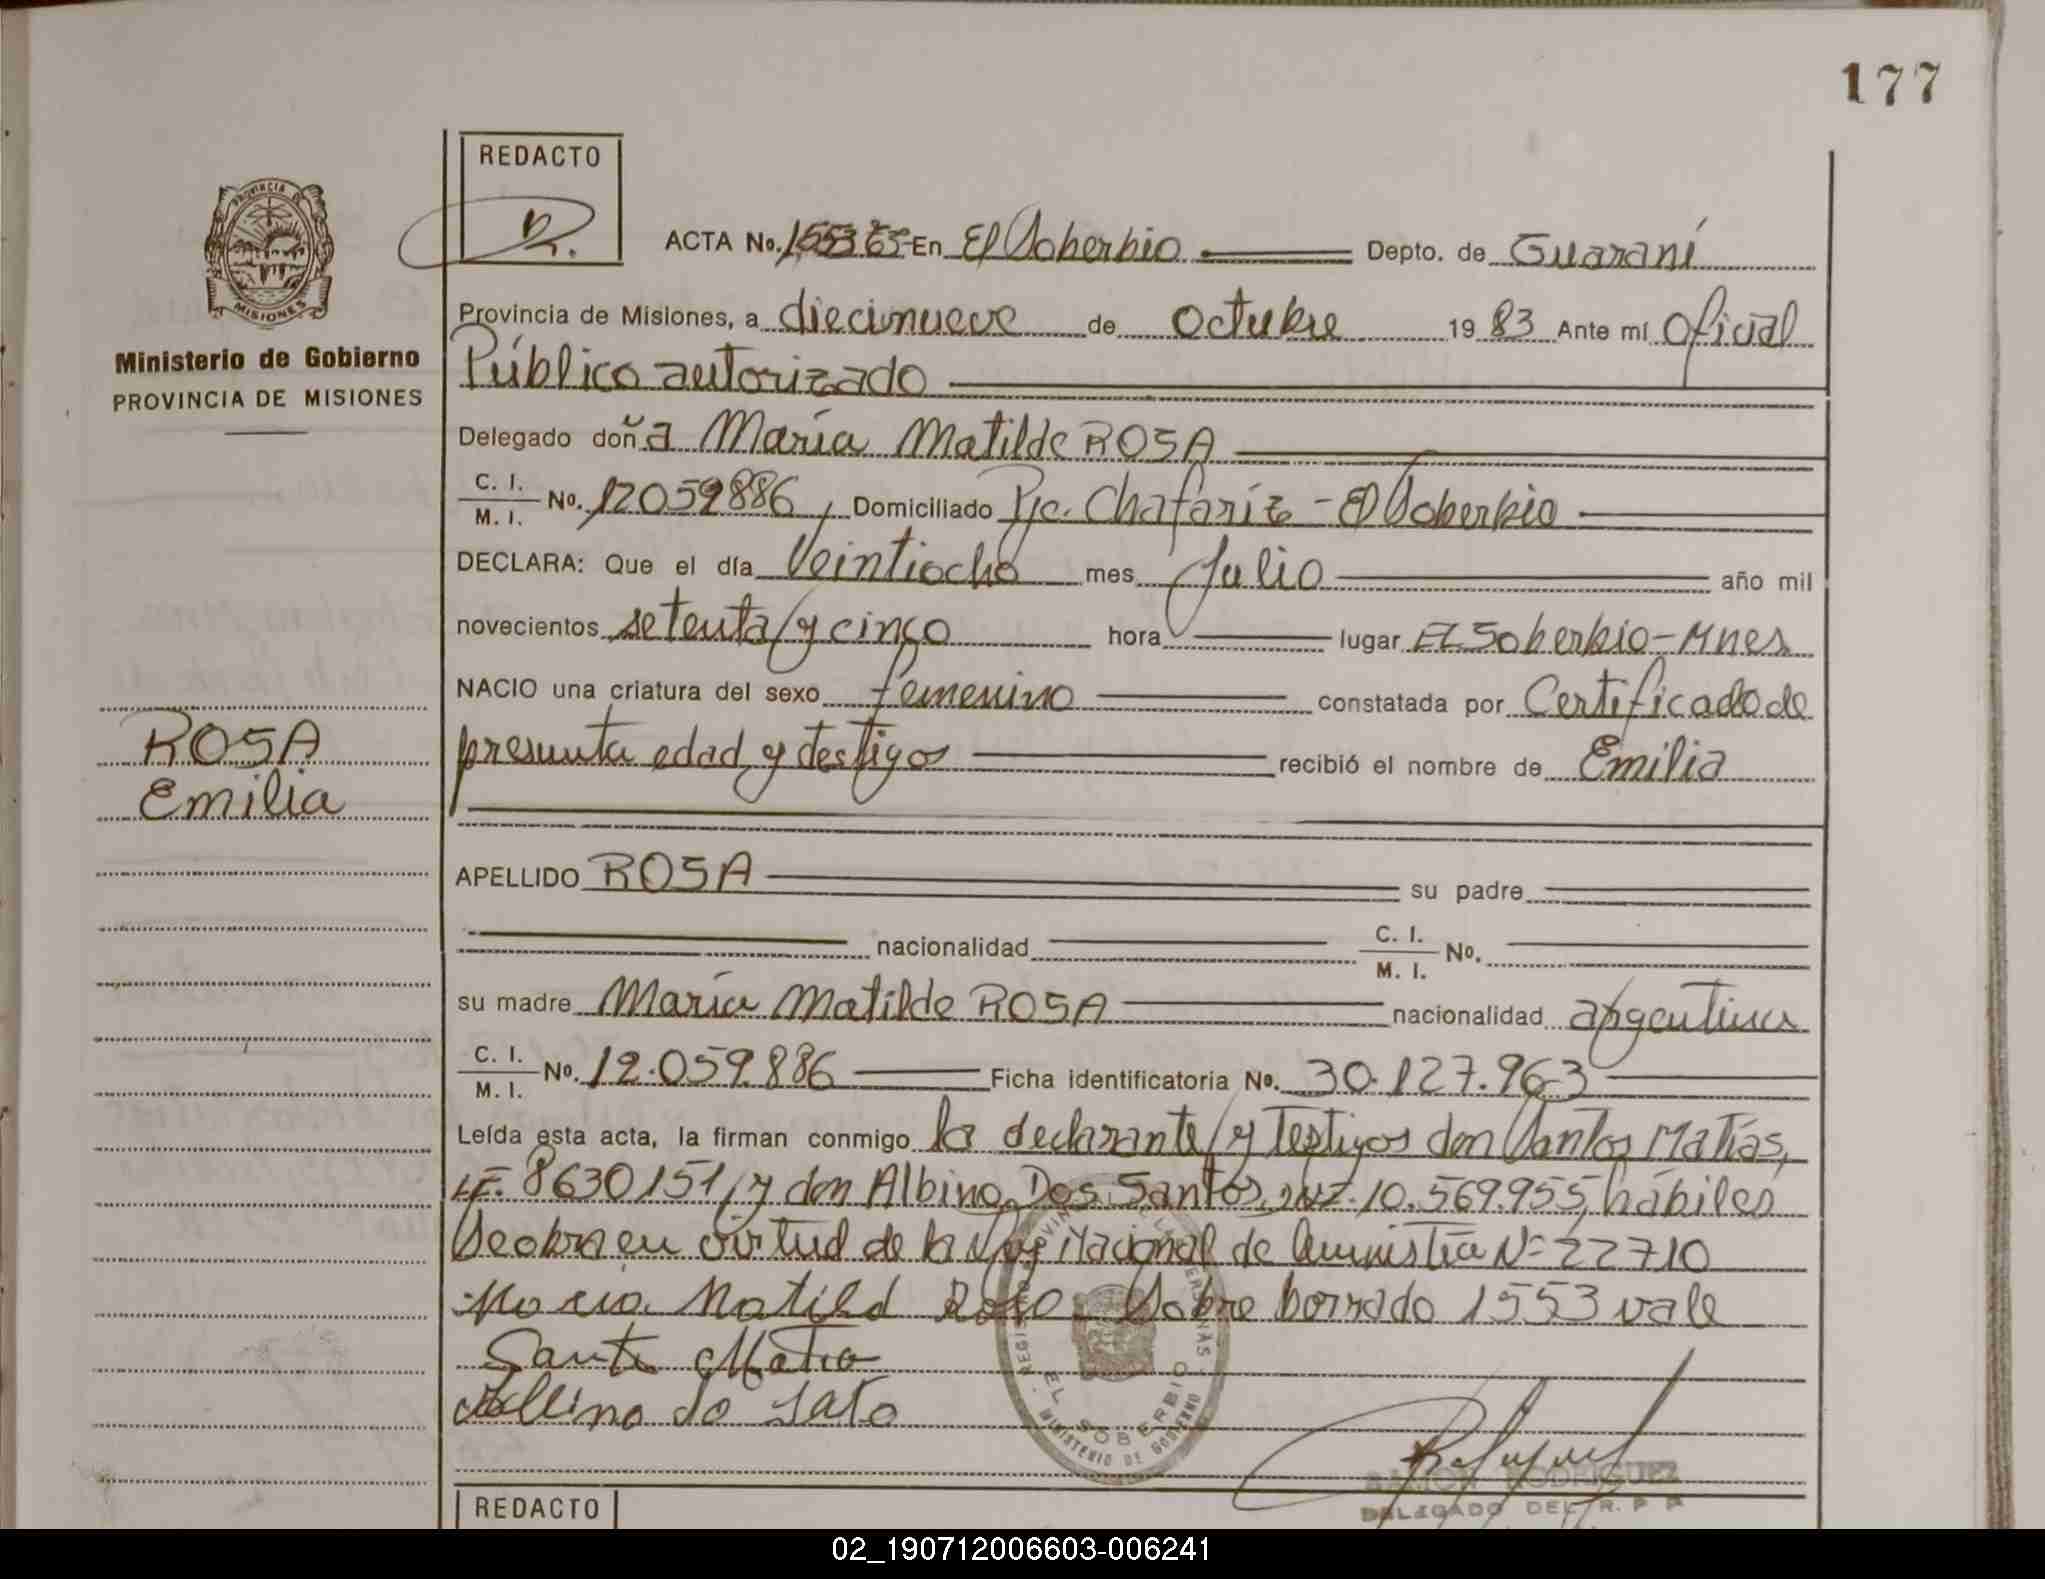 177
REDACTO
PROVINCIA DE
MISIONES
Ministerio de Gobierno
PROVINCIA DE MISIONES
ROSA
Emilia
ACTA No. En El Soberbio Depto. de Guaraní
Provincia de Misiones, a diecinueve de Octubre 19 83 Ante mí Oficial
Público autorizado
Delegado doña María Matilde ROSA
C. I.
M. I. No. 12059886, Domiciliado Pje. Chafariz - El Soberbio
DECLARA: Que el día Veintiocho mes Julio año mil
novecientos setenta y cinco hora lugar El Soberbio-Mnes
NACIO una criatura del sexo femenino constatada por Certificado de
presunta edad y testigos recibió el nombre de Emilia
APELLIDO ROSA su padre
nacionalidad C. I. M. I. No.
su madre María Matilde ROSA nacionalidad argentina
C. I.
M. I. No. 12.059.886 Ficha identificatoria No. 30.127.963
Leída esta acta, la firman conmigo la declarante y Testigos don Santos Matías,
LE. 8630151, y don Albino Dos Santos, 10.569.955, hábiles
Se obra en virtud de la Ley Nacional de Amnistía Nº 22710
Maria Matild Roso. Sobre borrado 1553 vale
Matia
do
EL SOBERBIO
MINISTERIO DE GOBIERNO
RAMON RODRIGUEZ
DELEGADO DEL R. P. P.
REDACTO
02_190712006603-006241